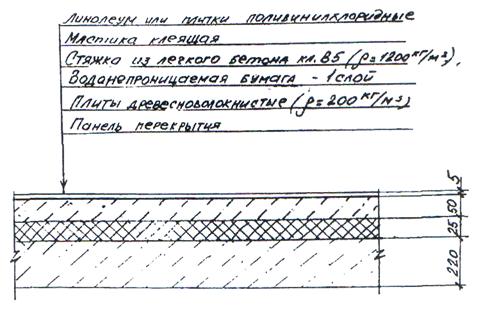 Линолеум или плитки поливинилхлоридные
Мастика клеящая
Стяжка из легкого бетона кл. В5 (ρ=1200кг/м³).
Водонепроницаемая бумага - 1 слой
Плиты древесноволокнистые (ρ=200кг/м³)
Панель перекрытия
5
50
25
220